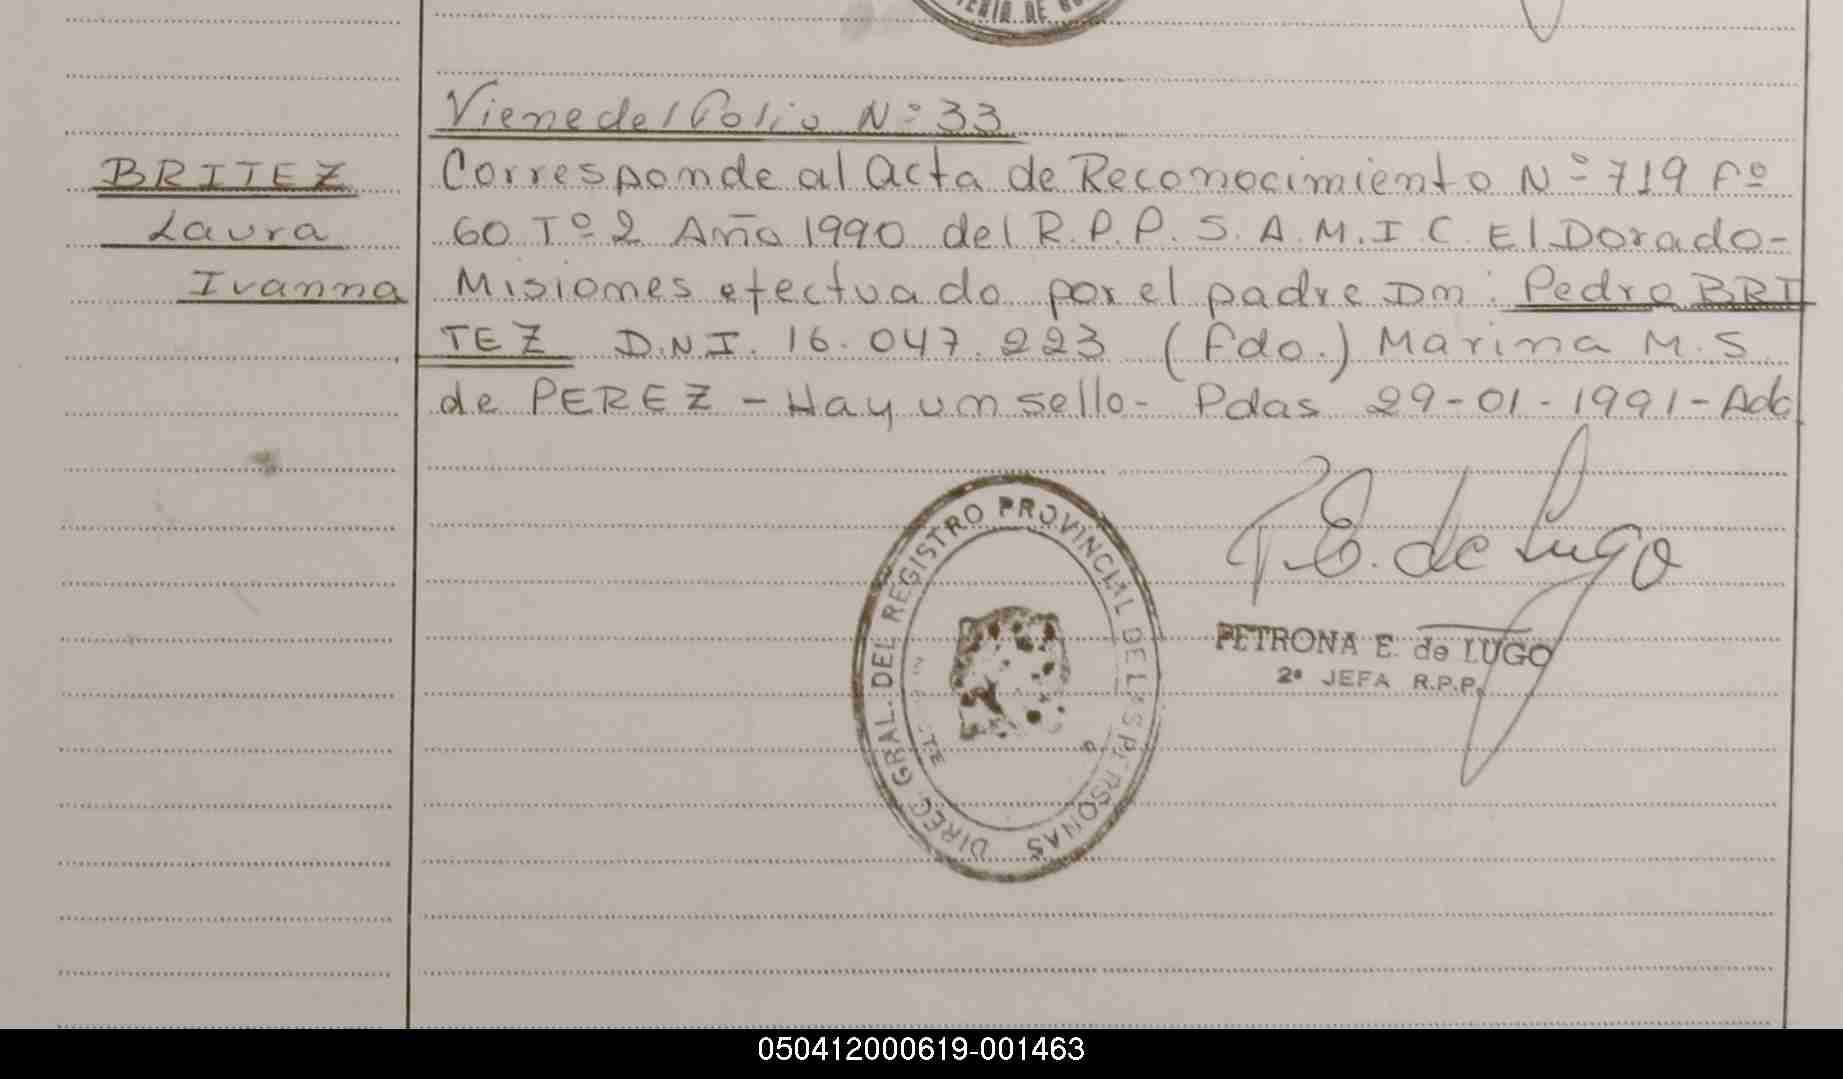 Viene del Folio Nº 33
BRITEZ
Laura
Ivanna
Corresponde al Acta de Reconocimiento Nº 719 Fº
60 Tº 2 Año 1990 del R.P.P. S.A.M.I.C. El Dorado-
Misiones efectuado por el padre Dn: Pedro BRI
TEZ D.N.I. 16.047.223 (Fdo.) Marina M.S.
de PEREZ - Hay un sello- Pdas 29-01-1991-Adc
DIREC. GRAL. DEL REGISTRO PROVINCIAL DE LAS PERSONAS
P.E. de Lugo
PETRONA E. de LUGO
2ª JEFA R.P.P.
050412000619-001463